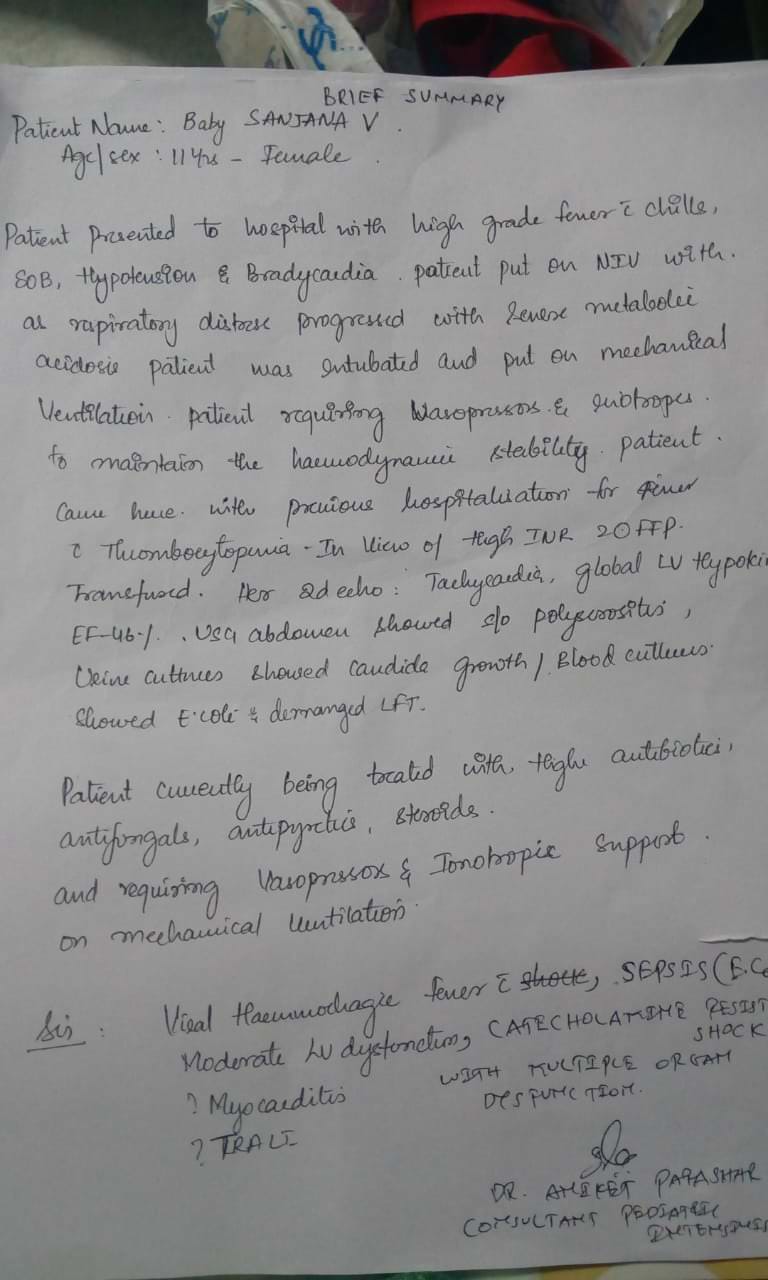 BRIEF SUMMARY
Patient Name: Baby SANJANA V.
Age/sex: 11 Yrs - Female.
Patient presented to hospital with high grade fever c̄ chills,
SOB, Hypotension & Bradycardia. patient put on NIV with.
as rapiratory distrese progressed with severe metabolic
acidosis patient was intubated and put on mechanical
Ventilation. patient requiring Vasopressors & inotropes.
to maintain the haemodynamic stability. patient.
Came here. with previous hospitalisation for fever
c̄ Thrombocytopenia - In View of High INR 20 FFP.
Transfused. Her 2d echo: Tachycardia, global LV Hypoki
EF-46%. USG abdomen showed s/o polyserositis,
Urine cultures showed candida growth / Blood cultures.
Showed E.coli & derranged LFT.
Patient currently being treated with, High antibiotic,
antifungals, antipyretics, steroids.
and requiring Vasopressors & Ionotropic support.
on mechanical ventilation.
Viral Haemmorhagic fever c̄ shock, SEPSIS (E.Co
Moderate LV dysfunction, CATECHOLAMINE RESIST
SHOCK
? Myocarditis WITH MULTIPLE ORGAN
DYSFUNCTION.
? TRALI
DR. ANIKET PARASHAR
CONSULTANT PEDIATRIC
INTENSIVIS